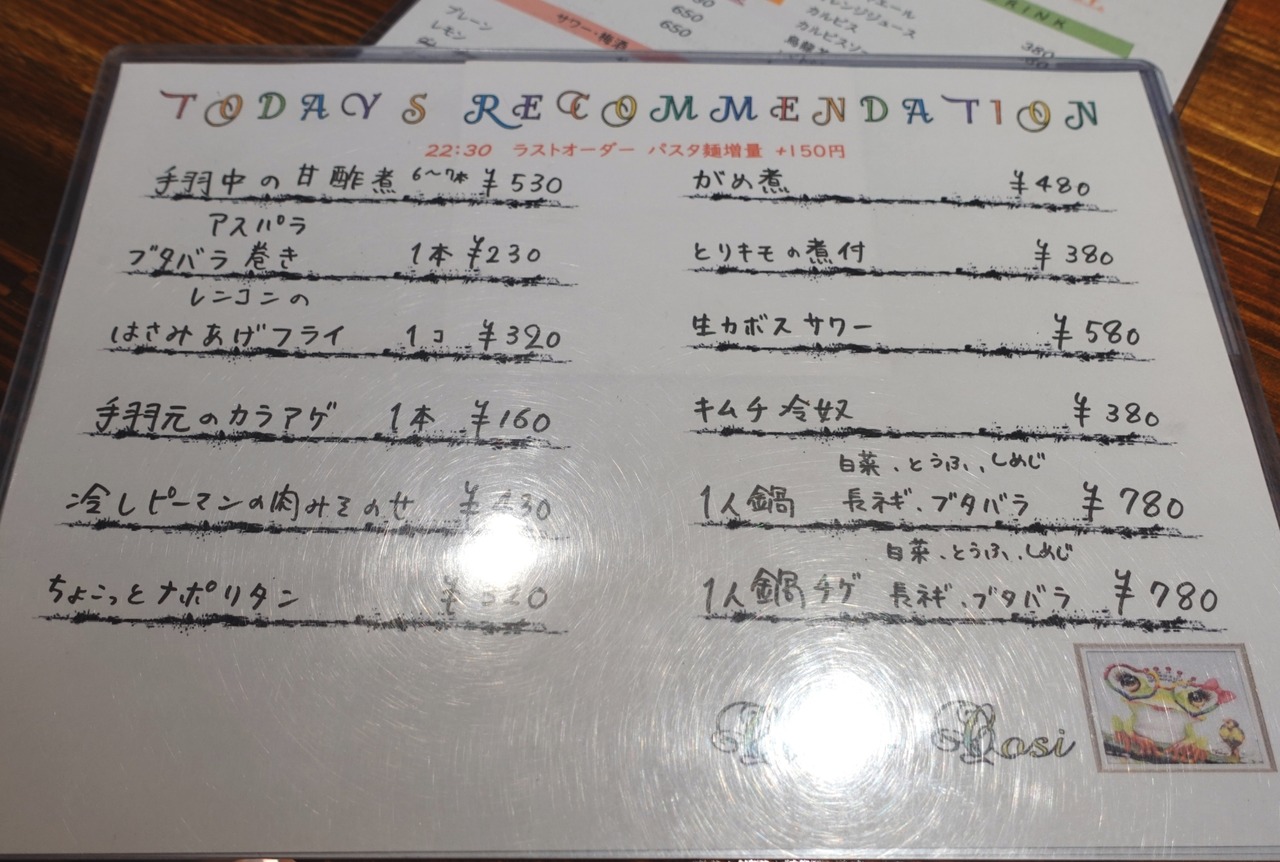 プレーン
レモン
サワー・梅酒
650
650
カルピス
DRINK
380
TODAY'S RECOMMENDATION
22:30 ラストオーダー パスタ麺増量 +150円
手羽中の甘酢煮 6〜7本 ¥530
アスパラ
ブタバラ巻き 1本 ¥230
レンコンの
はさみあげフライ 1コ ¥320
手羽元のカラアゲ 1本 ¥160
冷しピーマンの肉みそのせ
ちょこっとナポリタン ¥320
がめ煮 ¥480
とりキモの煮付 ¥380
生カボスサワー ¥580
キムチ冷奴 ¥380
白菜、とうふ、しめじ
1人鍋 長ネギ、ブタバラ ¥780
白菜、とうふ、しめじ
1人鍋チゲ 長ネギ、ブタバラ ¥780
Rosi